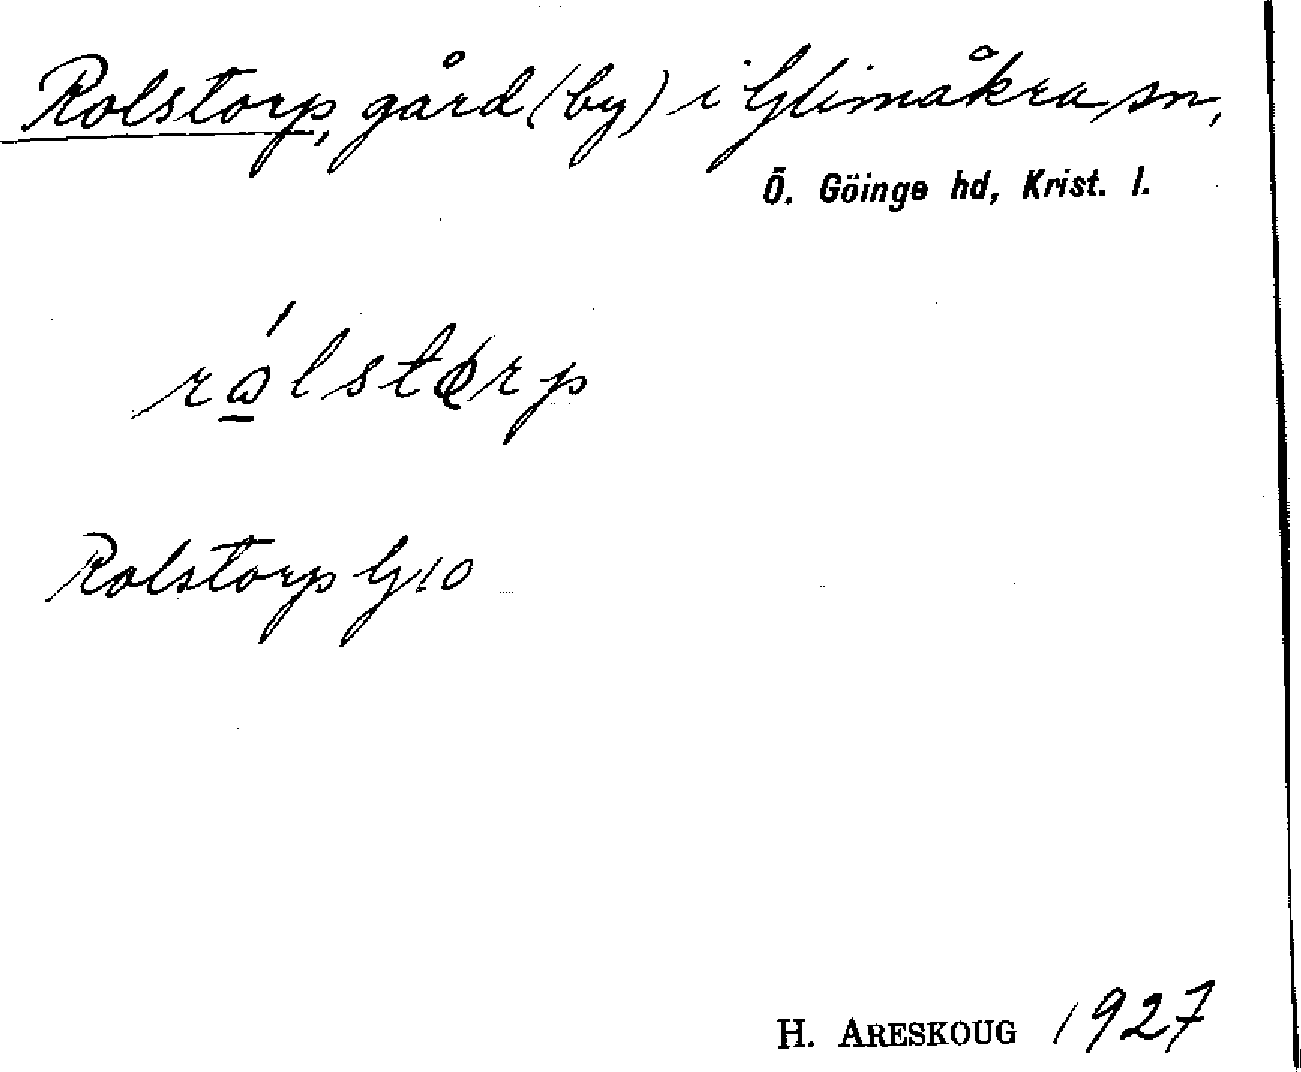 Rolstorp, gård (by) i Glimåkra sn,
Ö. Göinge hd, Krist. l.
Rolstorp G10
H. ARESKOUG 1927